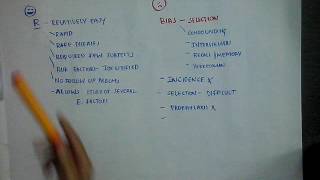 R - RELATIVELY EASY
RAPID
RARE DISEASES
REQUIRES FEW SUBJECTS
RISK FACTORS - IDENTIFIED
NO FOLLOW UP
ALLOWS STUDY OF SEVERAL
E. FACTORS
BIAS - SELECTION
CONFOUNDING
INTERVIEWER
RECALL/MEMORY
INCIDENCE X
SELECTION - DIFFICULT